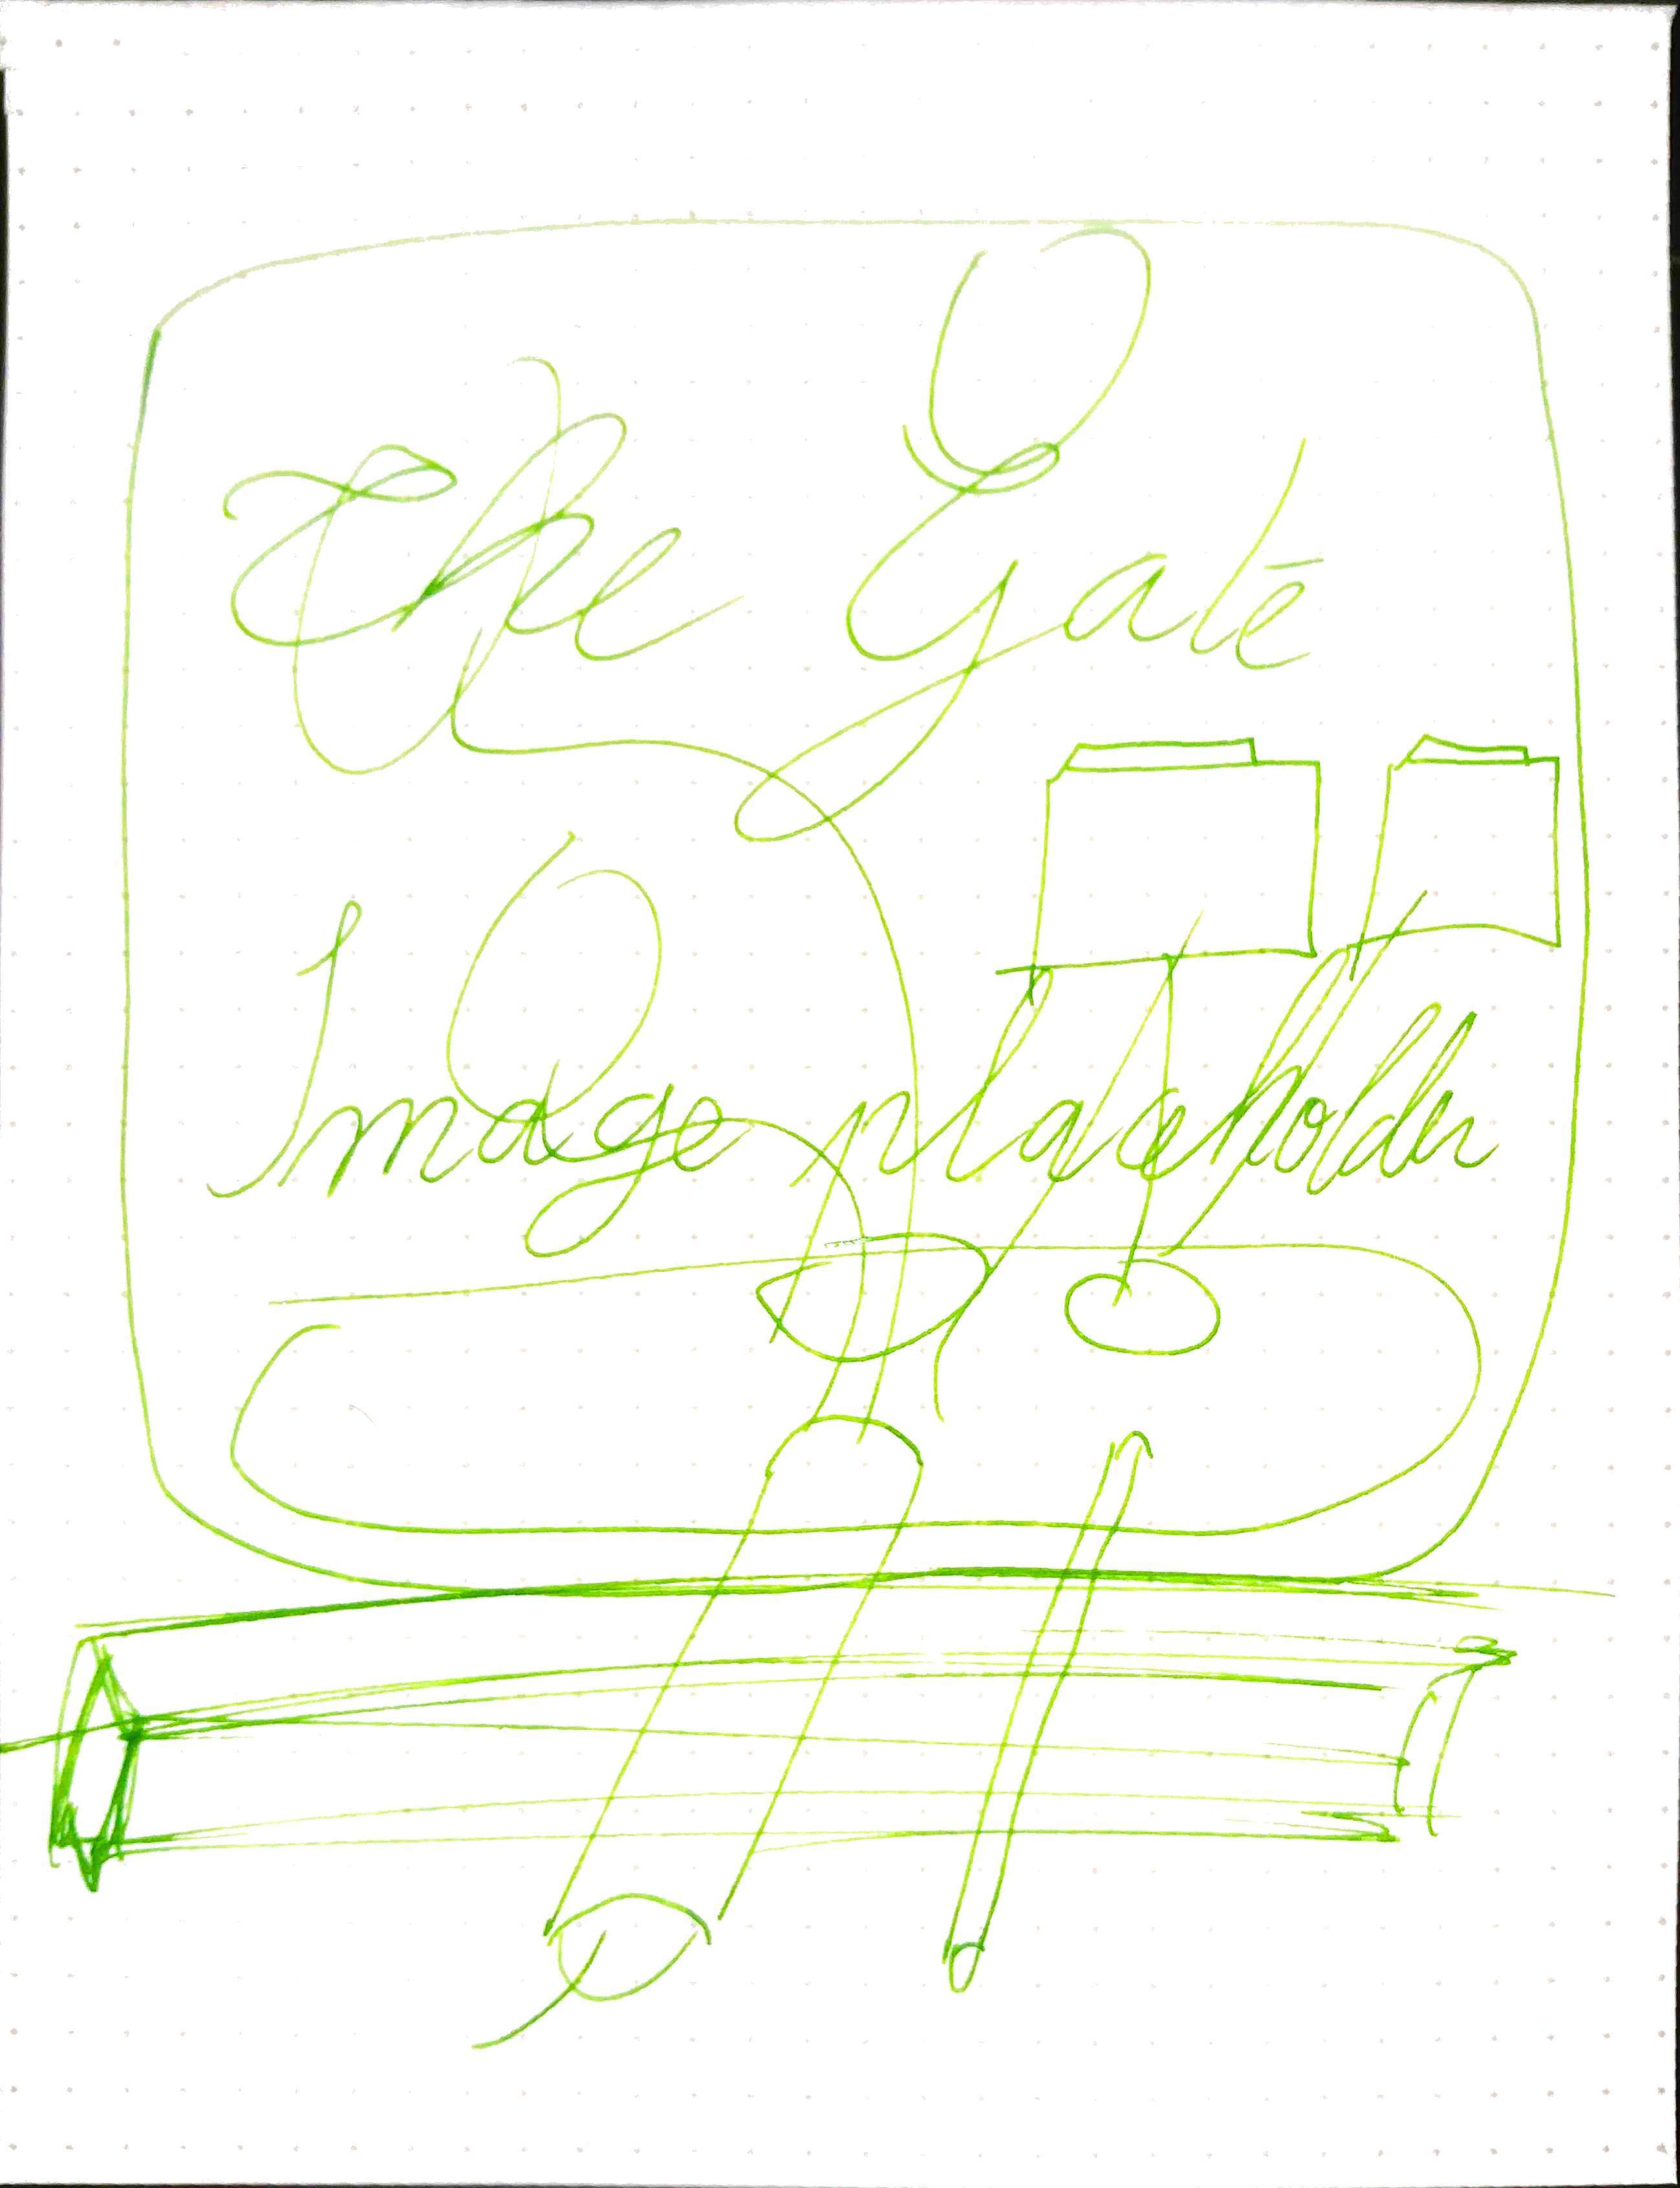 The Gate
Image placeholder